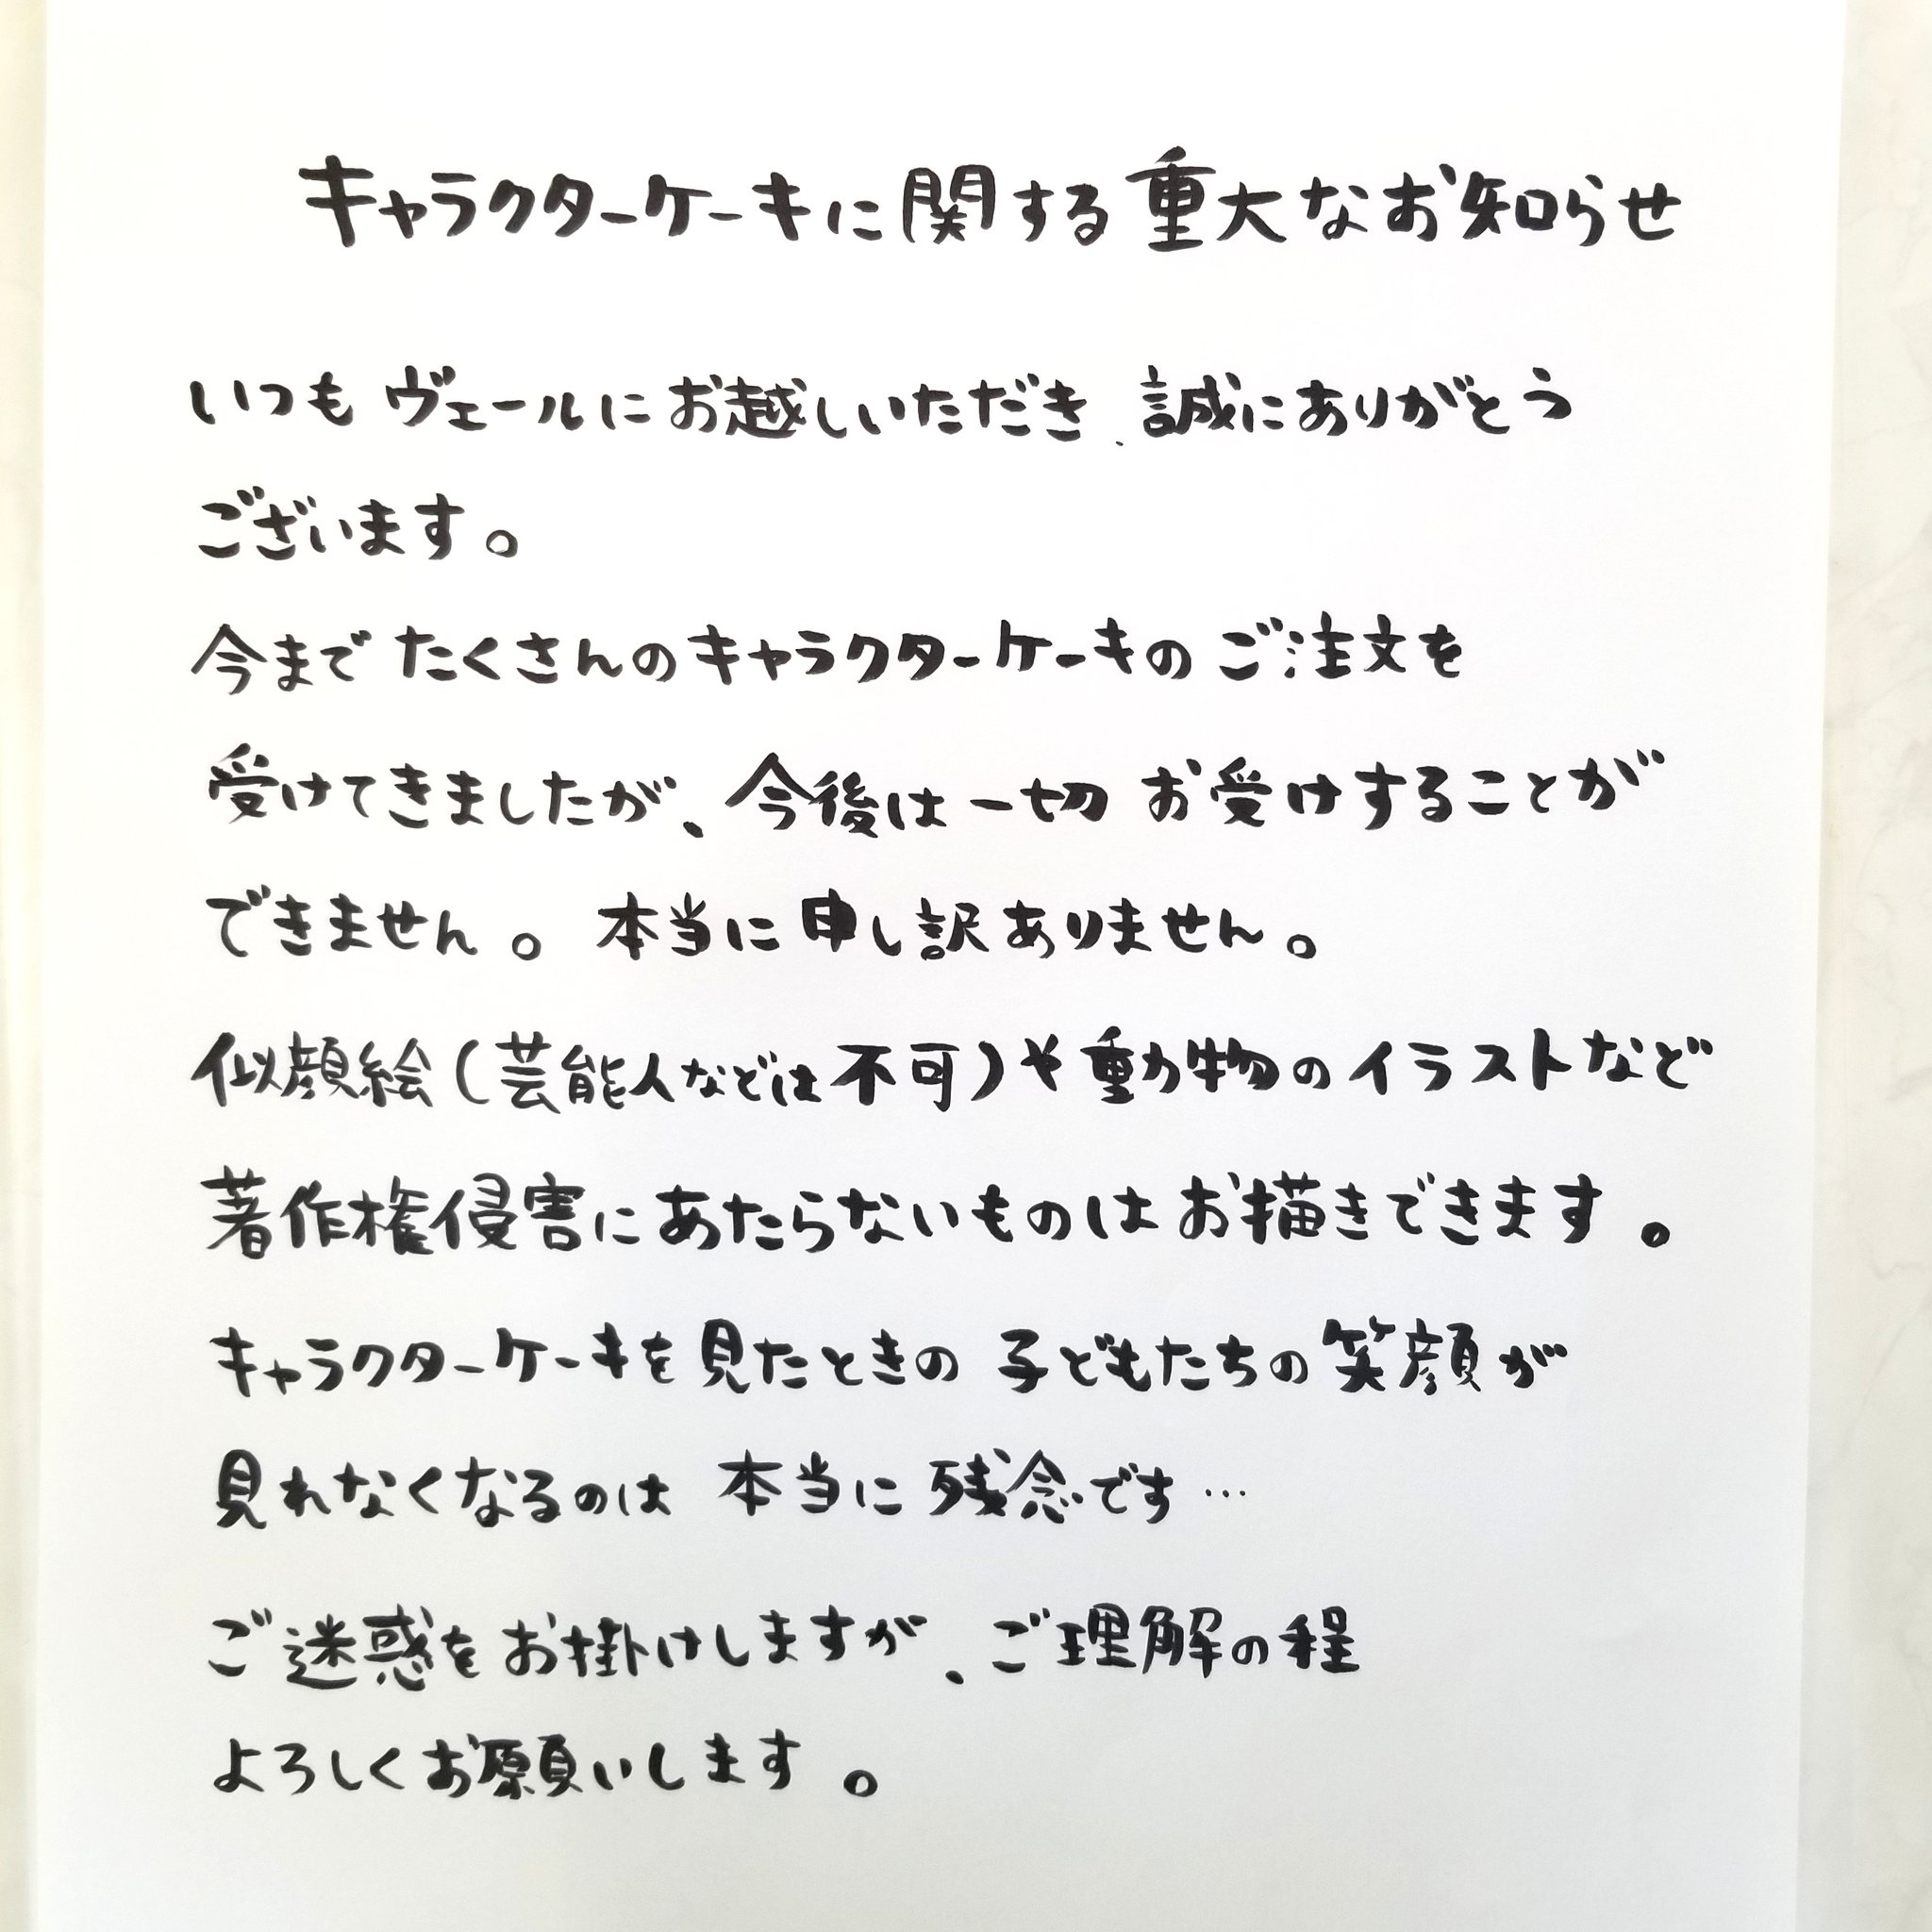 キャラクターケーキに関する重大なお知らせ
いつもヴェールにお越しいただき、誠にありがとう
ございます。
今までたくさんのキャラクターケーキのご注文を
受けてきましたが、今後は一切お受けすることが
できません。本当に申し訳ありません。
似顔絵(芸能人などは不可)や動物のイラストなど
著作権侵害にあたらないものはお描きできます。
キャラクターケーキを見たときの子どもたちの笑顔が
見れなくなるのは本当に残念です…
ご迷惑をお掛けしますが、ご理解の程
よろしくお願いします。